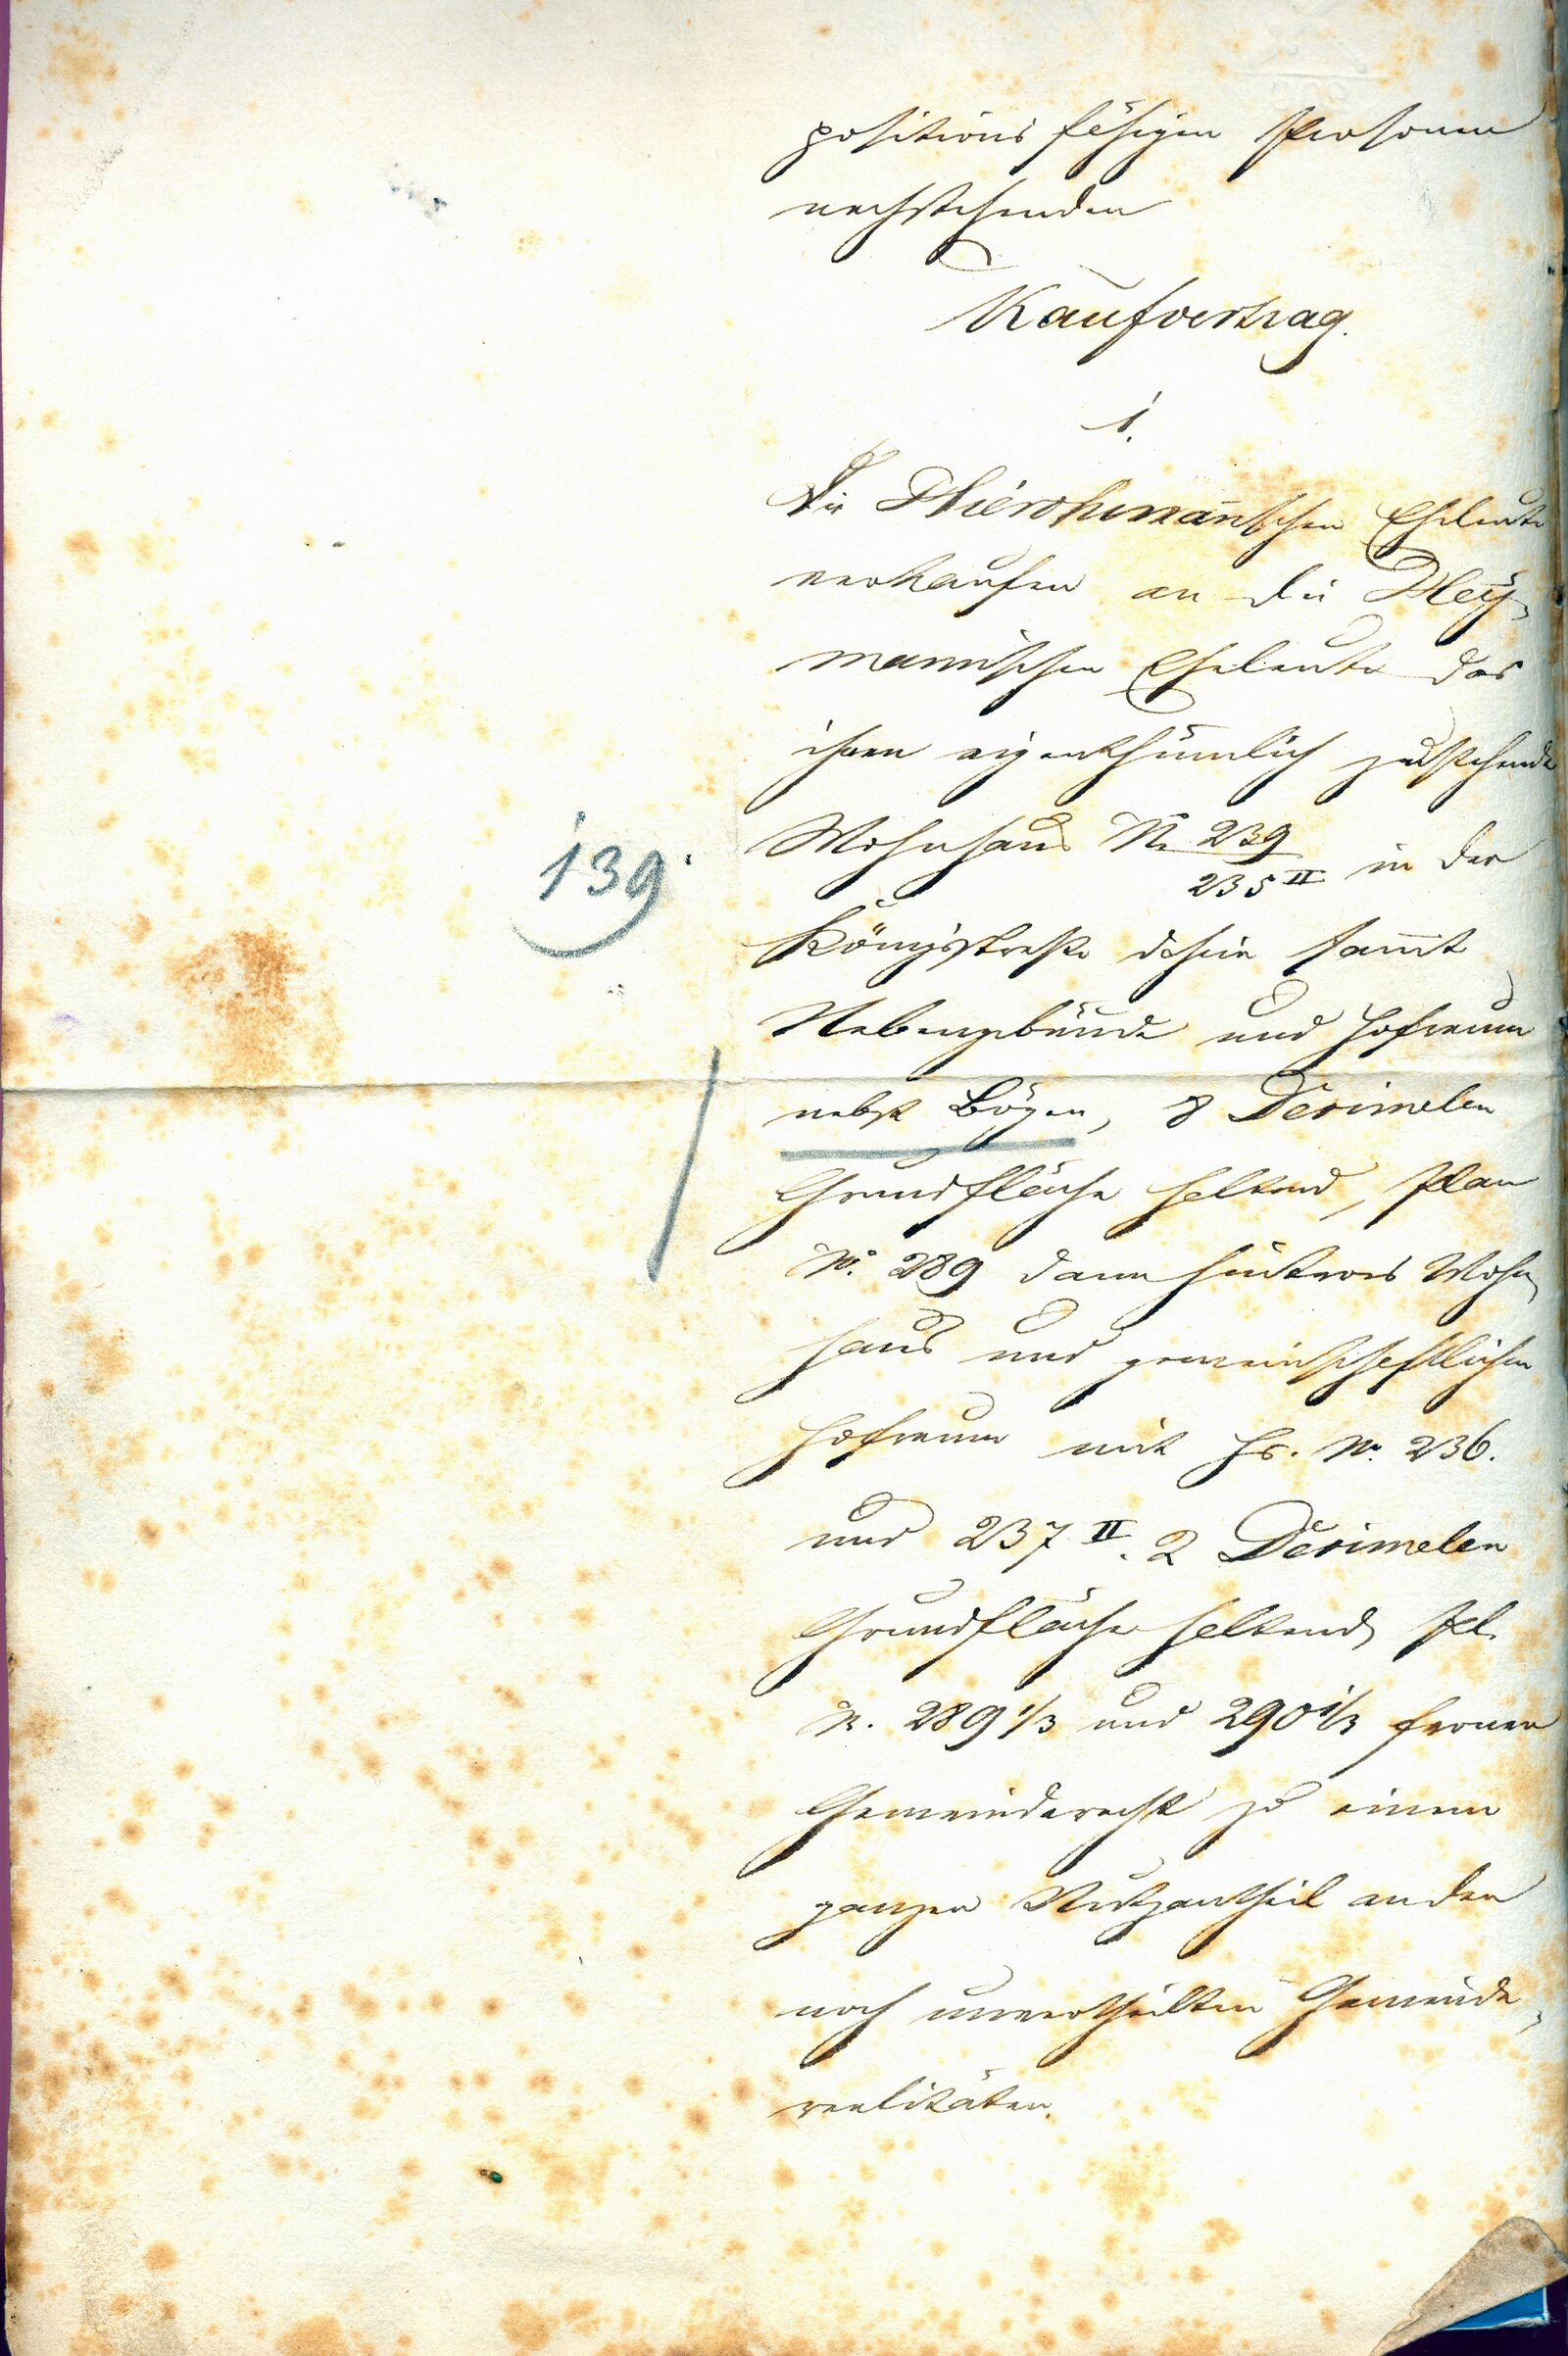 positions fähigen Personen
nachstehenden
Kaufvertrag.
1.
Die Hierohmannschen Eheleute
verkaufen an die Hey-
mannischen Eheleute das
ihnen eigenthümlich zustehende
Wohnhaus No 239/235 II in der
139.
Königsstraße dahier sammt
Nebengebäude und Hofraum
nebst Bögen, 8 Dezimalen
Grundfläche haltend, Plan
No. 289 dann hinteres Wohn-
haus und gemeinschaftlichen
Hofraum mit Hs. No. 236.
und 237 II. 2 Dezimalen
Grundfläche haltend, Pl.
N. 289 1/3 und 290 1/3 ferner
Gemeinderecht zu einem
ganzen Nutzantheil an den
noch unvertheilten Gemeinde-
realitäten.